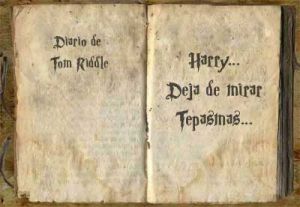 Diario de
Tom Riddle
Harry...
Deja de mirar
Tepasinas...